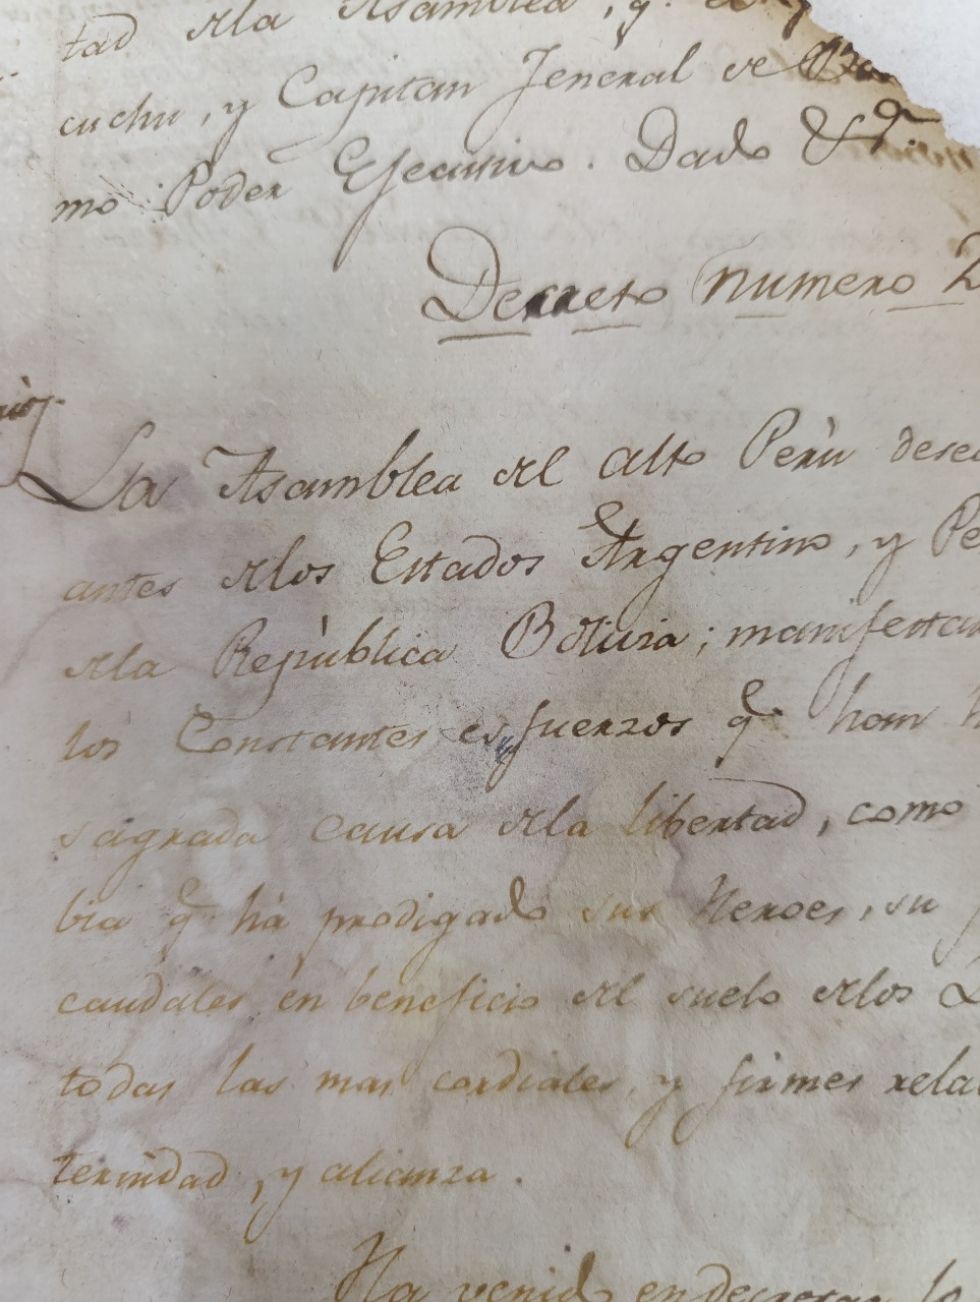 tad dela Asamblea, q.
cuchu, y Capitan Jeneral de
mo Poder Ejecutivo. Dado &.ª
Decreto Numero 2
La Asamblea del alto Perù dese
antes delos Estados Argentino, y Pe
dela Repùblica Bolivia; manifesta
los Constantes esfuerzos q.e han h
sagrada causa dela libertad, como
bia q.e hà prodigado sus Heroes, su
caudales èn beneficio del suelo delos
todas las mas cordiales, y firmes rela
ternidad, y alianza.
Ha venido en decretar lo